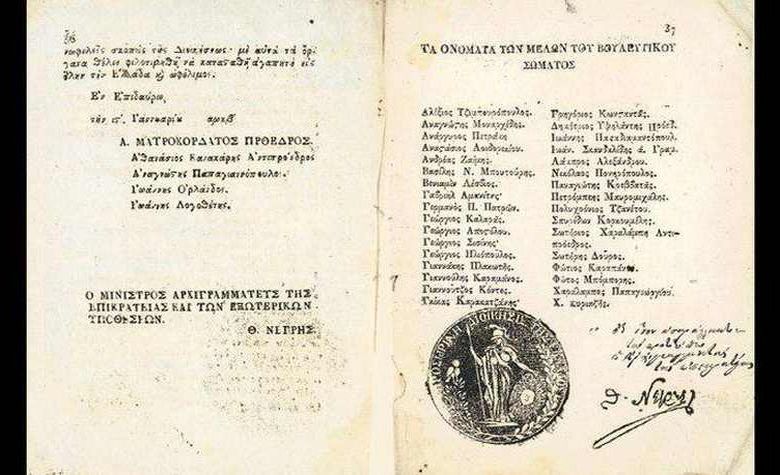 νωφελεῖς σκοποὺς τῆς Διοικήσεως· μὲ αὐτὰ τὰ ὄρ-
γανα θέλει φιλοτιμηθῆ νὰ κατασταθῇ ἀγαπητὸ εἰς
ὅλην τὴν Ἑλλάδα ϗ ὠφέλιμον.
Ἐν Ἐπιδαύρῳ,
τὴν Ἰαννουαρίου αωκβ
Α. ΜΑΥΡΟΚΟΡΔΑΤΟΣ ΠΡΟΕΔΡΟΣ.
Ἀθανάσιος Κανακάρης Ἀντιπρόεδρος
Ἀναγνώστης Παπαγιαννόπουλος
Ἰωάννης Ὀρλάνδος.
Ἰωάννης Λογοθέτης.
Ο ΜΙΝΙΣΤΡΟΣ ΑΡΧΙΓΡΑΜΜΑΤΕΥΣ ΤΗΣ
ΕΠΙΚΡΑΤΕΙΑΣ ΚΑΙ ΤΩΝ ΕΞΩΤΕΡΙΚΩΝ
ΥΠΟΘΕΣΕΩΝ.
Θ. ΝΕΓΡΗΣ.
37
ΤΑ ΟΝΟΜΑΤΑ ΤΩΝ ΜΕΛΩΝ ΤΟΥ ΒΟΥΛΕΥΤΙΚΟΥ
ΣΩΜΑΤΟΣ
Ἀλέξιος Τζιμπουρόπουλος.
Ἀναγνώστης Μοναρχίδης.
Ἀνάργυρος Πετράκη
Ἀναστάσιος Λοιδορικίου.
Ἀνδρέας Ζαΐμης.
Βασίλης Ν. Μπουτούρης.
Βενιαμὶν Λέσβιος.
Γαβριὴλ Ἀμανίτης
Γερμανὸς Π. Πατρῶν.
Γεώργιος Καλαρᾶς.
Γεώργιος Ἀποστόλου.
Γεώργιος Σισίνης
Γεώργιος Ἡλιόπουλος.
Γιαννάκης Πλακωτῆς.
Γιαννούλης Καραμάνος.
Γιαννοῦτζος Κόντες.
Γκίκας Καρακατζάνης
Γρηγόριος Κωνσταντᾶς.
Δημήτριος Ὑψηλάντης Πρόεδ.
Ἰωάννης Παπαδιαμαντόπουλ.
Ἰωάν. Σκανδαλίδης ἀ. Γραμ.
Λάμπρος Ἀλεξάνδρου.
Νικόλαος Πονηρόπουλος.
Παναγιώτης Κρεββατᾶς.
Πετρόμπεης Μαυρομιχάλης.
Πολυχρόνιος Τζανέτου.
Σπυρίδων Κορκουμέλης.
Σωτήριος Χαραλάμπη Ἀντι-
πρόεδρος.
Σωτήρης Δοῦρος.
Φώτιος Καραπάνου
Φῶτος Μπόμπορης.
Χαράλαμπος Παπαγεωργίου.
Χ.
Θ. Νέγρης